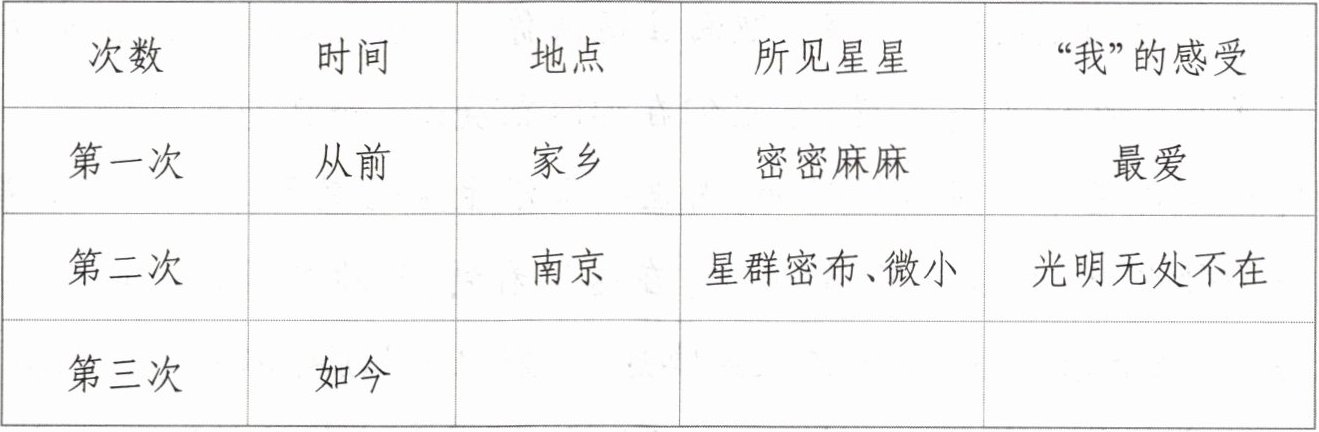 次数 时间 地点 所见星星 “我”的感受
第一次 从前 家乡 密密麻麻 最爱
第二次 南京 星群密布、微小 光明无处不在
第三次 如今